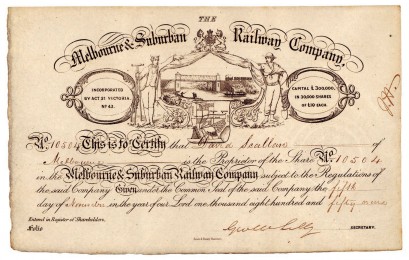 THE
Melbourne & Suburban Railway Company.
INCORPORATED
BY ACT 21 VICTORIA
Nº 43.
CAPITAL £ 300,000,
IN 30,000 SHARES
OF £10 EACH.
Nº. 10504 This is to Certify that David Scallan of
Melbourne is the Proprietor of the Share Nº. 10504
in the Melbourne & Suburban Railway Company subject to the Regulations of
the said Company Given under the Common Seal of the said Company the fifth
day of November in the year of our Lord one thousand eight hundred and fifty nine
Entered in Register of Shareholders.
Folio
SECRETARY.